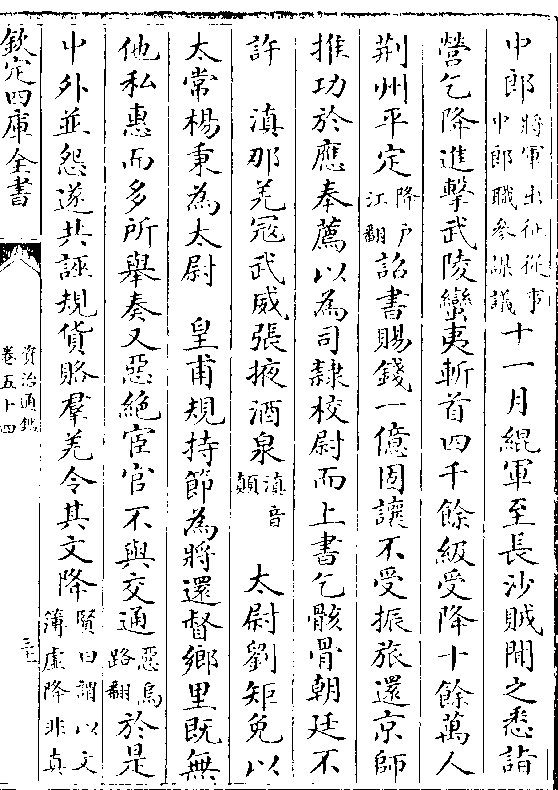 中郎將軍出征從事中郎職參謀議十一月緄軍至長沙賊聞之悉詣
營乞降進擊武陵蠻夷斬首四千餘級受降十餘萬人
荆州平定降户江翻詔書賜錢一億固讓不受振旅還京師
推功於應奉薦以為司隷校尉而上書乞骸骨朝廷不
許 滇那羌冦武威張掖酒泉滇音顛 太尉劉矩免以
太常楊秉為太尉 皇甫規持節為將還督鄉里既無
他私惠而多所舉奏又惡絶宦官不與交通惡烏路翻於是
中外並怨遂共誣規貨賂羣羌令其文降賢曰謂以文簿虛降非真
欽定四庫全書
資治通鑑
卷五十四
三五